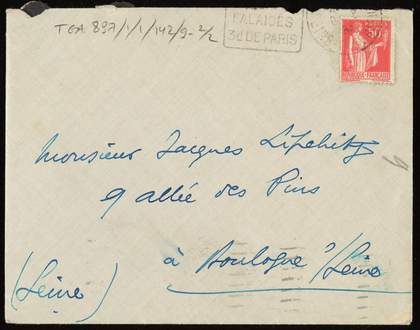 TGA 897/1/1/142/9-2/2
PALAIDES
3d DE PARIS
50
REPUBLIQUE FRANÇAISE
Monsieur Jacques Lipchitz
9 allée des Pins
à Boulogne s/Seine
(Seine)